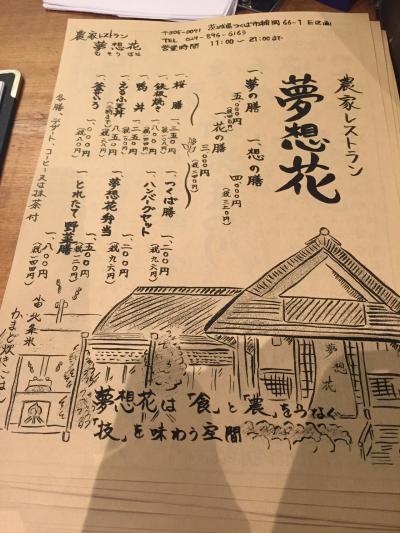 農家レストラン
夢想花
むそうばな
〒305-0071 茨城県つくば市稲岡66-1
TEL 029-896-6163
営業時間 11:00〜21:00
農家レストラン
夢想花
一、夢の膳
五、〇〇〇円
一、想の膳
四、〇〇〇円(税三二〇円)
一、花の膳
三、〇〇〇円
(税二四〇円)
一、桜膳
一、鉄板焼き
一、鴨丼
一、えるふ天丼
一、釜ぎょう
一、つくば膳
一、二〇〇円
(税九六円)
一、ハンバーグセット
一、夢想花弁当
一、二〇〇円
(税九六円)
一、とれたて野菜膳
一、五〇〇円
(税一二〇円)
一、八〇〇円
(税一四四円)
各膳、デザート、コーヒー又は抹茶付
北条米
かまど炊きごはん
夢想花
夢想花は「食」と「農」をつなぐ
「技」を味わう空間